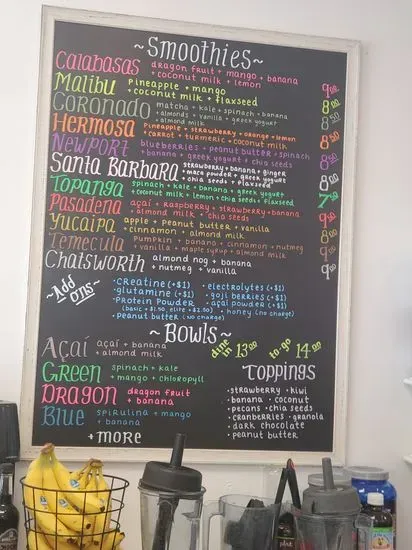 ~Smoothies~
Calabasas dragon fruit + mango + banana + coconut milk + lemon 9.00
Malibu pineapple + mango + coconut milk + flaxseed 8.00
Coronado matcha + kale + spinach + banana + almonds + vanilla + greek yogurt + almond milk 8.50
Hermosa pineapple + strawberry + orange + lemon + carrot + turmeric + coconut milk 8.50
Newport blueberries + peanut butter + spinach + banana + greek yogurt + chia seeds 8.50
Santa Barbara strawberry + banana + ginger + maca powder + greek yogurt + chia seeds + flaxseed 8.00
Topanga spinach + kale + banana + greek yogurt + coconut milk + lemon + chia seeds + flaxseed 7.50
Pasadena açaí + raspberry + strawberry + banana + almond milk + chia seeds 9.00
Yucaipa apple + peanut butter + vanilla + cinnamon + almond milk 8.00
Temecula pumpkin + banana + cinnamon + nutmeg + vanilla + maple syrup + almond milk 9.00
Chatsworth almond nog + banana + nutmeg + vanilla 9.00
~Add ons~
·Creatine (+$1) ·electrolytes (+$1)
·glutamine (+$1) ·goji berries (+$1)
·Protein Powder ·açaí powder (+$1)
(basic + $1.50, elite + $2.50) ·honey (no charge)
·Peanut butter (no charge)
~Bowls~
dine in 13.00 to-go 14.00
Açaí açaí + banana + almond milk
Green spinach + kale + mango + chloropyll
Dragon dragon fruit + banana
Blue spirulina + mango + banana
+ more
Toppings
·strawberry ·kiwi
·banana ·coconut
·pecans ·chia seeds
·cranberries ·granola
·dark chocolate
·peanut butter